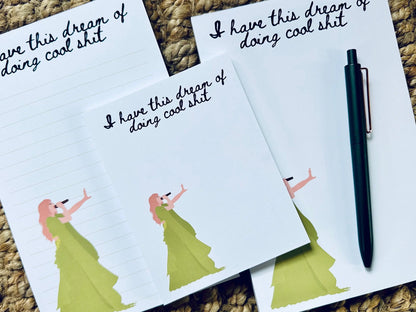 have this dream of
doing cool shit
I have this dream of
doing cool shit
I have this dream of
doing cool shit